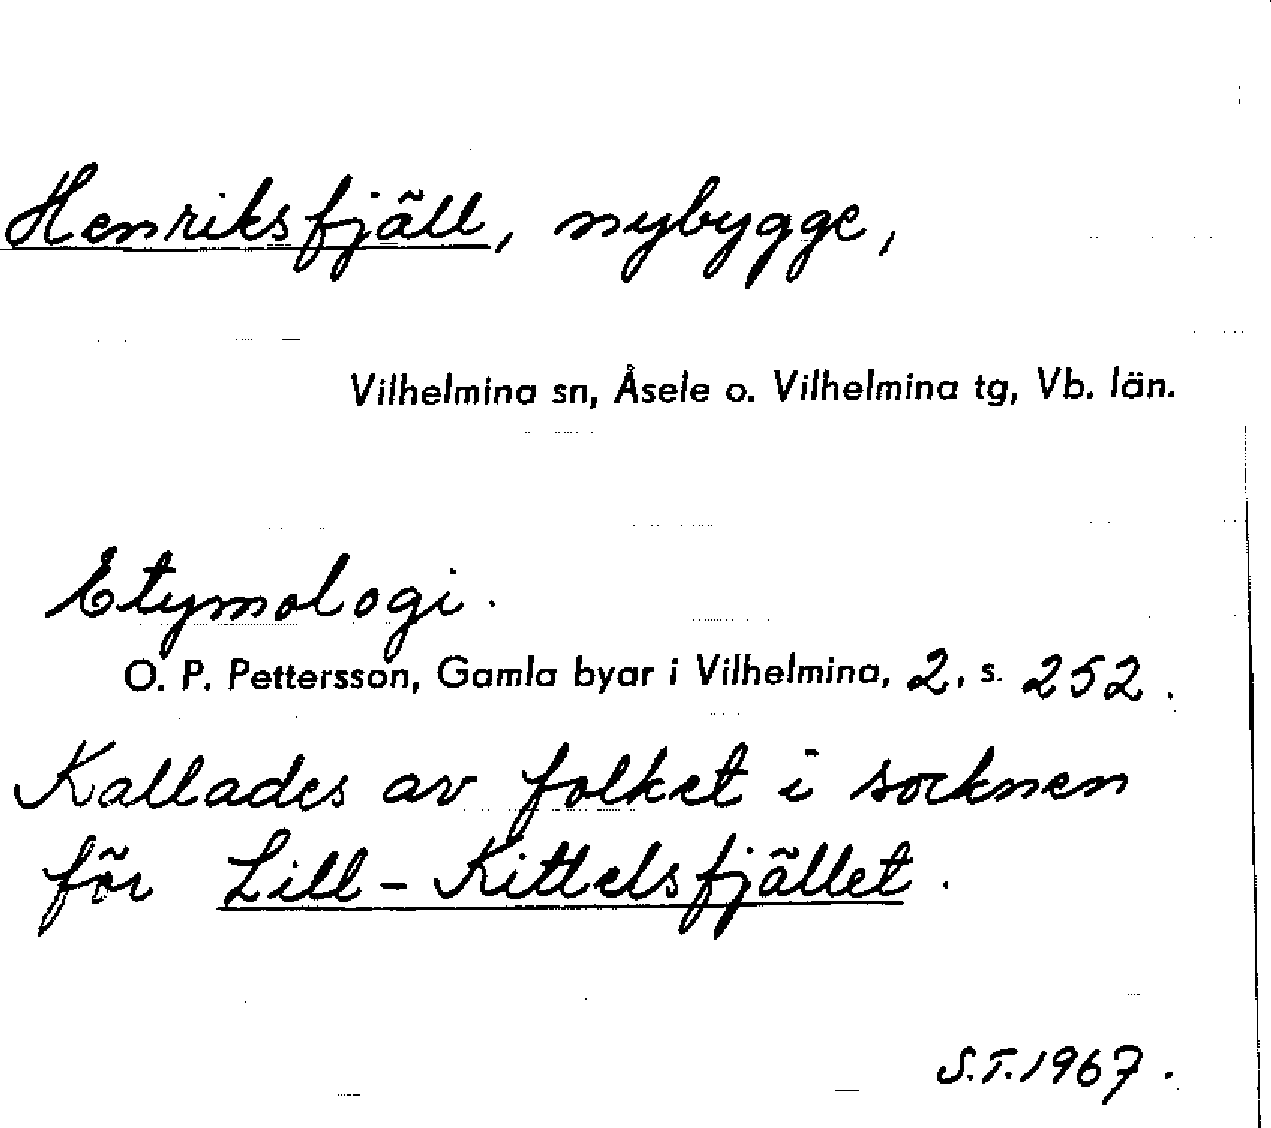 Henriksfjäll, nybygge,
Vilhelmina sn, Åsele o. Vilhelmina tg, Vb. län.
Etymologi.
O. P. Pettersson, Gamla byar i Vilhelmina, 2, s. 252.
Kallades av folket i socknen
för Lill-Kittelsfjället.
S.T.1967.